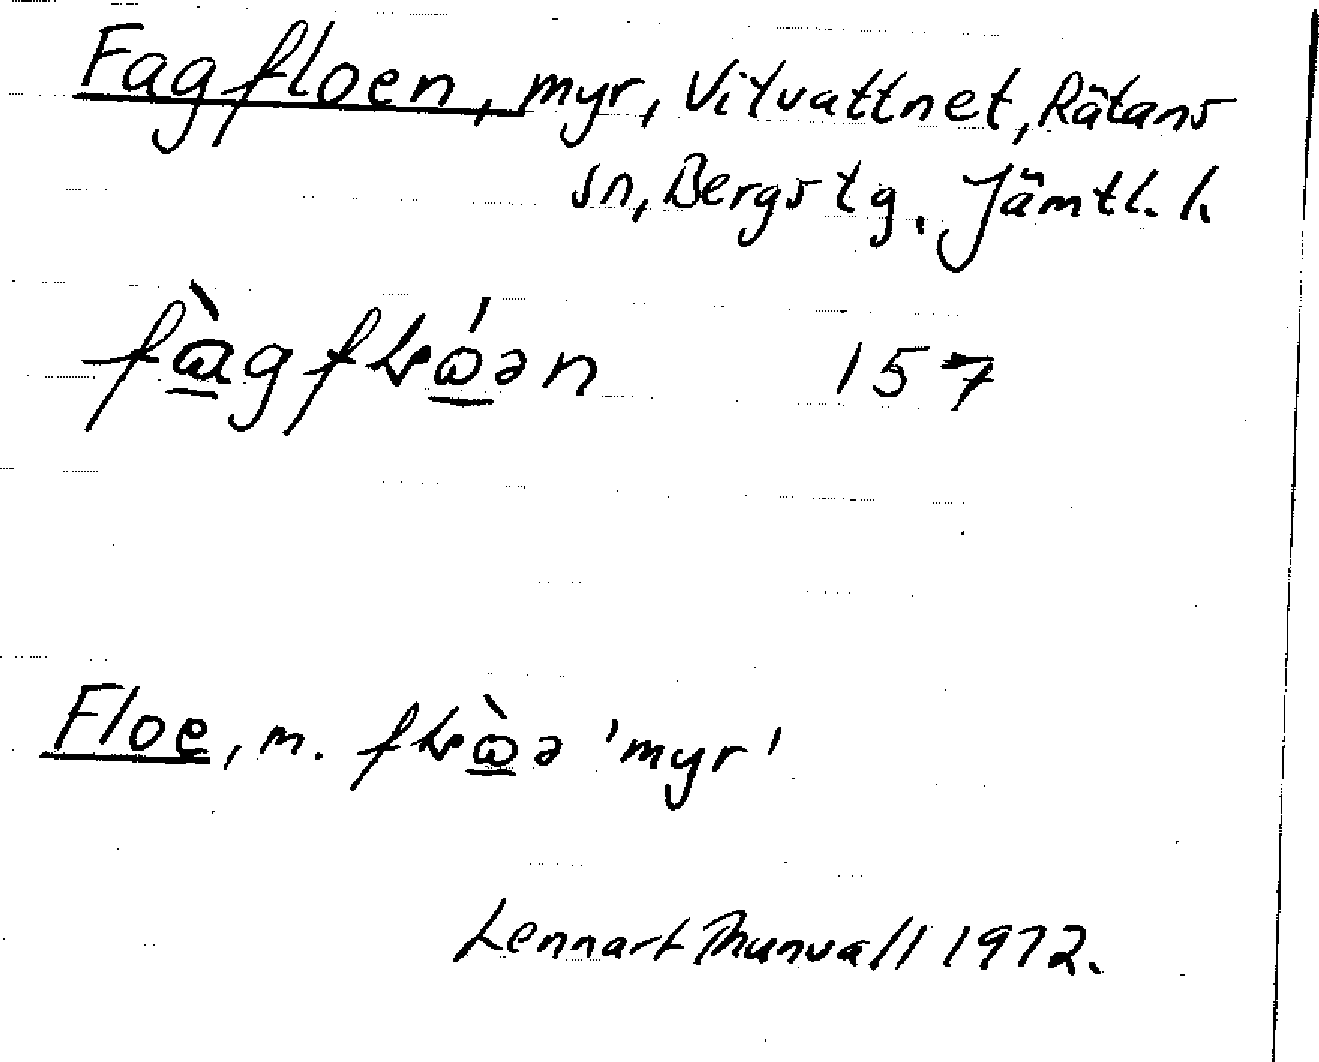 Fagfloen, myr, Vitvattnet, Rätans
sn, Bergs tg. Jämtl. l.
fàgfɬώ̲ən 157
Floe, m. fɬὼ̲ə 'myr'
Lennart Thunvall 1972.